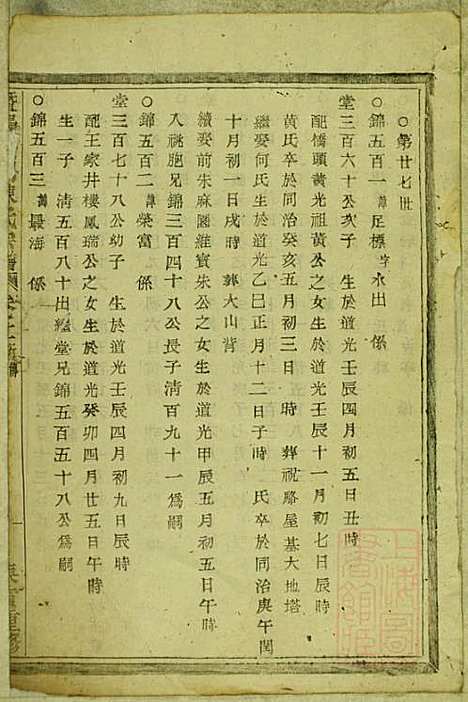 ○第廿七世
○錦五百一 諱足標字水出 係
堂三百六十公次子 生於道光壬辰四月初五日丑時
配橋頭黃光祖黃公之女生於道光壬辰十一月初七日辰時
黃氏卒於同治癸亥五月初三日 時 葬祝略屋基大地塔
繼娶何氏生於道光乙巳正月十二日子時 氏卒於同治庚午閏
十月初一日戌時 葬大山背
續娶前朱麻園維賓朱公之女生於道光甲辰五月初五日午時
入祧胞兄錦三百四十八公長子清百九十一爲嗣
○錦五百二 諱榮富 係
堂三百七十八公幼子 生於道光壬辰四月初九日辰時
配王家井樓鳳瑞公之女生於道光癸卯四月廿五日午時
生一子 清五百八十出繼堂兄錦五百五十八公爲嗣
○錦五百三 諱最海 係
上海圖書館藏